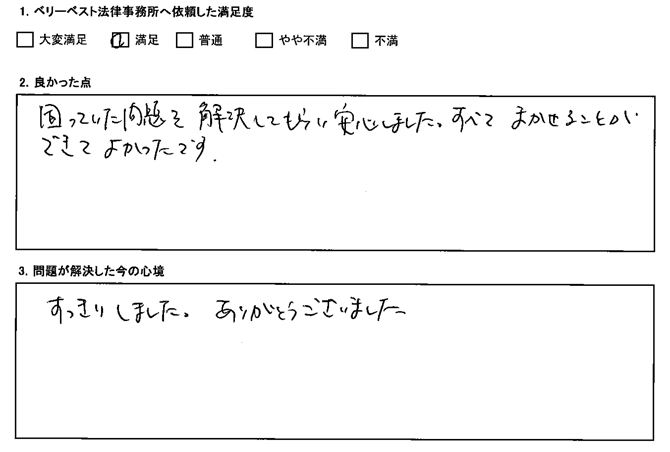 1. ベリーベスト法律事務所へ依頼した満足度
□ 大変満足 □ 満足 □ 普通 □ やや不満 □ 不満
2. 良かった点
困っていた問題を解決してもらい安心しました。すべてまかせることが
できてよかったです.
3. 問題が解決した今の心境
すっきりしました。ありがとうございました